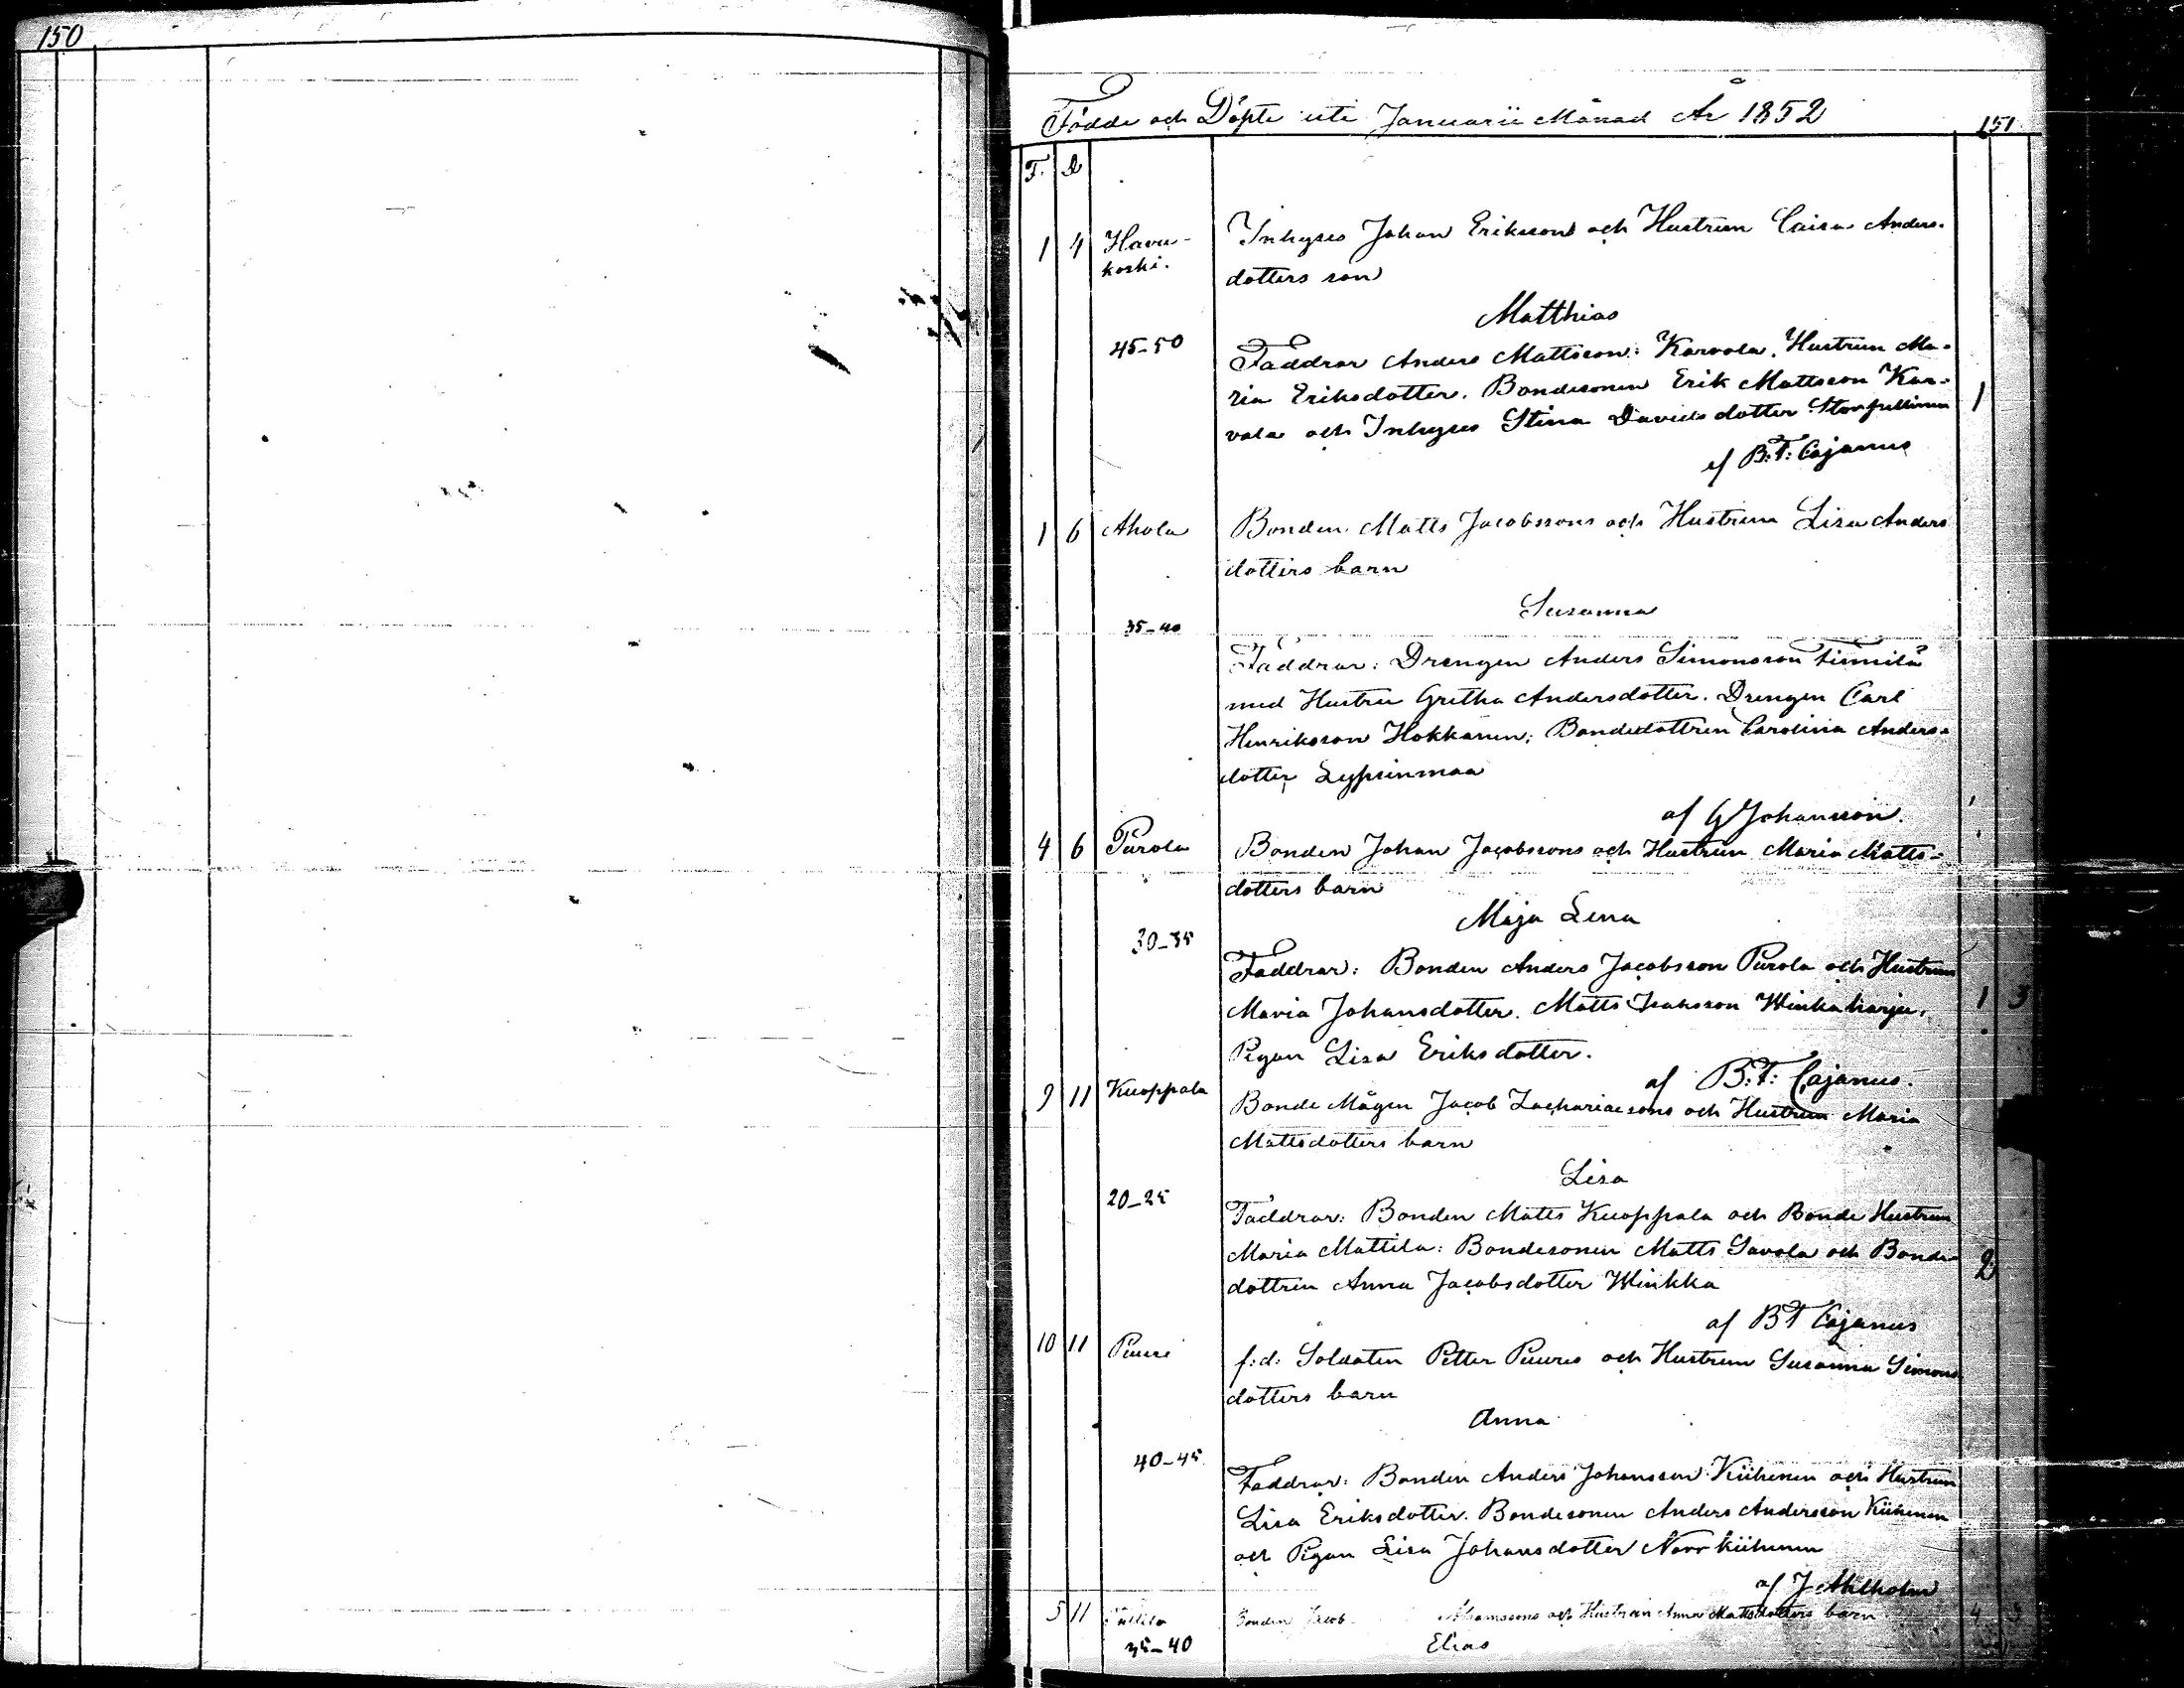 150
Födde och Döpte uti Januarii Månad År 1852
151
F. D
1 4 Havu- Inhyses Johan Erikssons och Hustrun Caisa Anders-
koski. dotters son
Matthias
45-50 Faddrar Anders Mattsson Karvola. Hustrun Ma-
ria Eriksdotter. Bondesonen Erik Mattsson Kar- 1
vala och Inhyses Stina Davidsdotter
af B:F: Cajanus
1 6 Ahola Bonden Matts Jacobssons och Hustrun Lisa Anders
dotters barn
Susanna
35-40
Faddrar: Drengen Anders Simonsson
med Hustru Gretha Andersdotter. Drengen Carl
Henriksson Hokkanen; Bondedottren Carolina Anders-
dotter Lypsinmaa
af G Johansson.
4 6 Purola Bonden Johan Jacobssons och Hustrun Maria Matts-
dotters barn
Maja Lena
30-35
Faddrar: Bonden Anders Jacobsson Purola och Hustrun
Maria Johansdotter. Matts Isaksson Winkaharju. 1 3
Pigan Lisa Eriksdotter.
af B:F: Cajanus.
9 11 Kuoppala Bonde Mågen Jacob Zachariaesons och Hustrun Maria
Mattsdotters barn
Lisa
20-25 Faddrar: Bonden Matts Kuoppala och Bonde Hustrun
Maria Mattila: Bondesonen Matts Savola och Bonde- 2
dottren Anna Jacobsdotter Winkka
af BF Cajanus
10 11 Puure f:d: Soldaten Petter Puures och Hustrun Susanna Simons
dotters barn
Anna
40-45 Faddrar: Bonden Anders Johansson Kiihenen och Hustrun
Lisa Eriksdotter. Bondesonen Anders Andersson Kiihenen
och Pigan Lisa Johansdotter Norr Kiihenen
af J Ahlholm
5 11 Bonden Jacob Abramssons och Hustrun Anna Mattsdotters barn 4 3
35-40 Elias